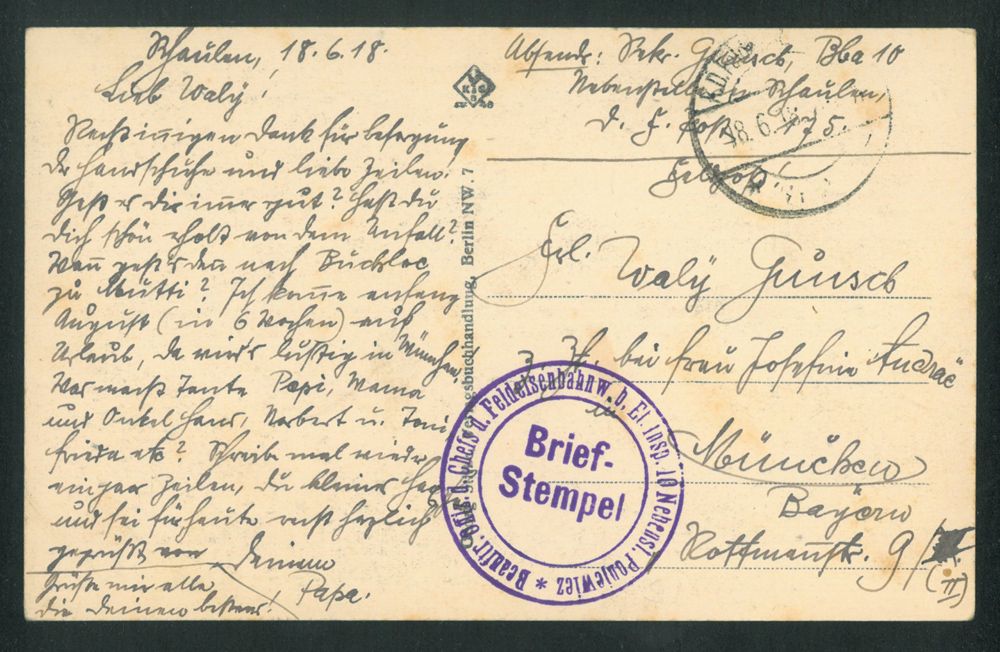 Schaulen, 18.6.18.
Lieb Waly!
Recht innigen Dank für besorgung
der Handschuhe und liebe Zeilen.
Geht es dir immer gut? Hast du
dich schön erholt von dem Anfall?
Wann geht's denn nach Buchloe
zu Mutti? Ich komme anfang
August (in 6 Wochen) auf
Urlaub, da wird's lustig in München.
Was macht Tante Pepi, Mama
und Onkel Hans, Norbert u. Toni
Frieda etc? Schreib mal wieder
ein paar Zeilen, du kleiner
und sei für heute recht herzlich
gegrüßt von Deinem
Papa.
Grüße mir alle
die Deinen bestens!
Absender: Sekr. Günsch, Bba 10
Nebenstelle in Schaulen,
D. F. Post 175.
Feldpost
18.6.
Frl. Waly Günsch
z. Zt. bei Frau Josefine Andrae
in München
Bayern
Rottmannstr. 9/
(II)
gsbuchhandlung, Berlin NW. 7
Beauftr. Offiz. d. Chefs d. Feldeisenbahnw. b. El. Insp. 10 Nebenst. Ponjewiez *
Brief-
Stempel